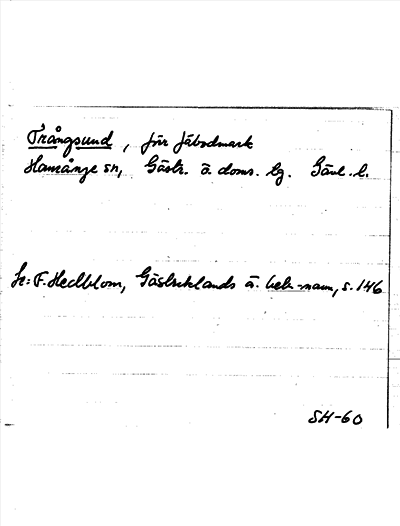 Trångsund, förr fäbodmark
Hamrånge sn, Gästr. ö. doms. lg. Gävl. l.
Se: F. Hedblom, Gästriklands ä. beb.-namn, s. 146
SH-60